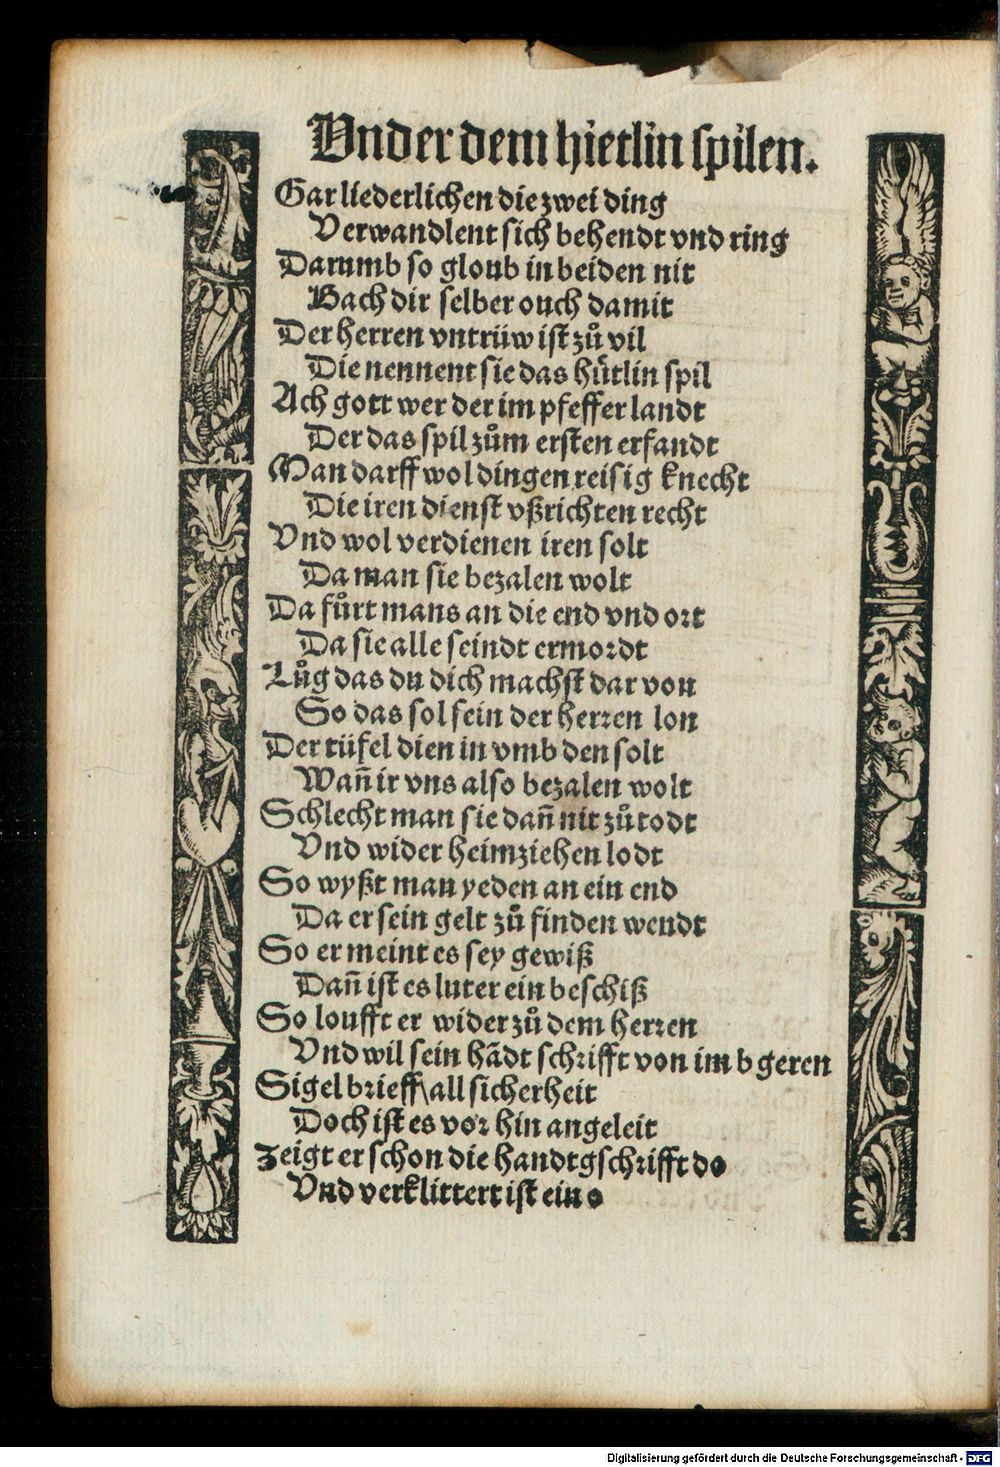 Vnder dem hietlin spilen.
Gar liederlichen die zwei ding
Verwandlent sich behendt vnd ring
Darumb so gloub in beiden nit
Bach dir selber ouch damit
Der herren vntrüw ist zuͦ vil
Die nennent sie das huͤtlin spil
Ach gott wer der im pfeffer landt
Der das spil zuͦm ersten erfandt
Man darff wol dingen reisig knecht
Die iren dienst vßrichten recht
Vnd wol verdienen iren solt
Da man sie bezalen wolt
Da fuͦrt mans an die end vnd ort
Da sie alle seindt ermordt
Luͦg das du dich machst dar von
So das sol sein der herren lon
Der tüfel dien in vmb den solt
Wañ ir vns also bezalen wolt
Schlecht man sie dañ nit zuͦ todt
Vnd wider heimziehen lodt
So wyßt man yeden an ein end
Da er sein gelt zuͦ finden wendt
So er meint es sey gewiß
Dañ ist es luter ein beschiß
So loufft er wider zuͦ dem herren
Vnd wil sein hãdt schrifft von im b geren
Sigel brieff\ all sicherheit
Doch ist es vor hin angeleit
Zeigt er schon die handtgschrifft do
Vnd verklittert ist ein o
Digitalisierung gefördert durch die Deutsche Forschungsgemeinschaft - DFG